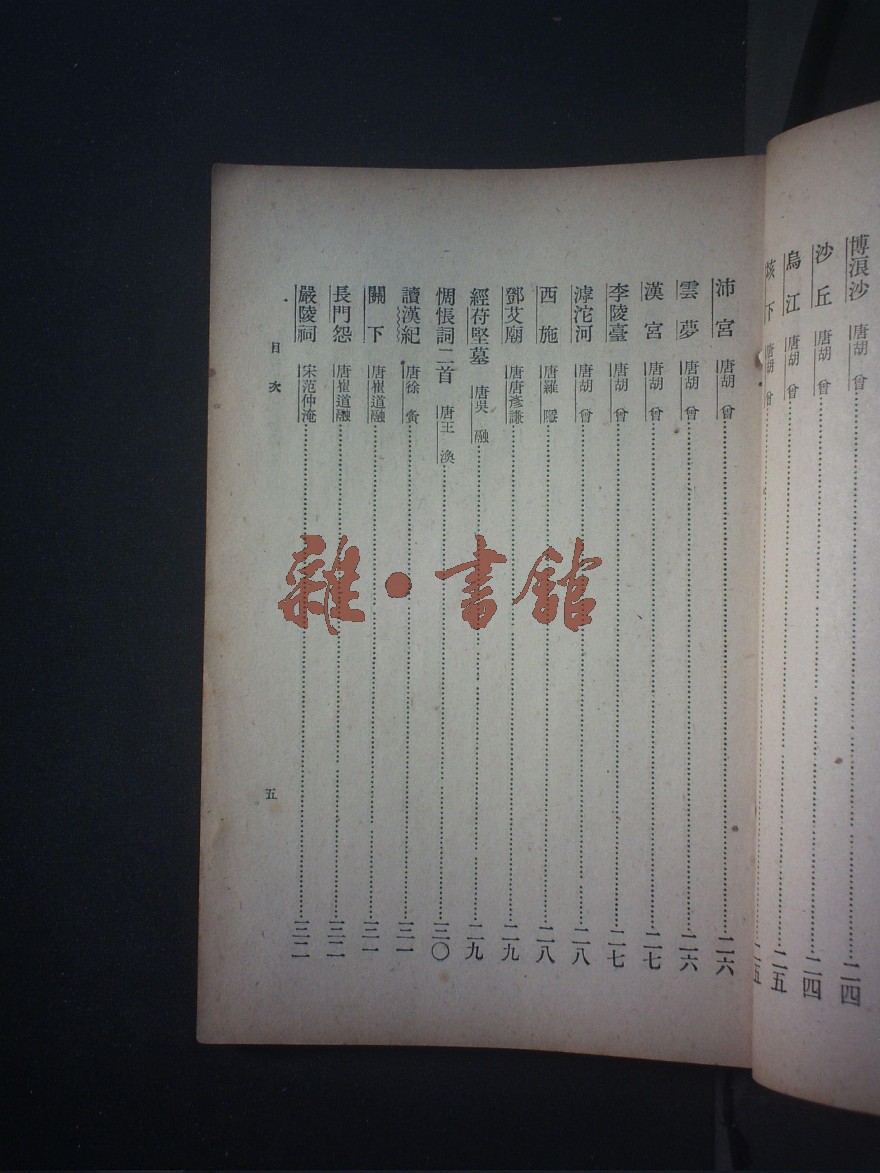 博浪沙 唐胡曾……二四
沙丘 唐胡曾……二四
烏江 唐胡曾……二五
垓下 唐胡曾……二五
沛宮 唐胡曾……二六
雲夢 唐胡曾……二六
漢宮 唐胡曾……二七
李陵臺 唐胡曾……二七
滹沱河 唐胡曾……二八
西施 唐羅隱……二八
鄧艾廟 唐唐彥謙……二九
經苻堅墓 唐吳融……二九
惆悵詞二首 唐王渙……三〇
讀漢紀 唐徐夤……三一
關下 唐崔道融……三一
長門怨 唐崔道融……三二
嚴陵祠 宋范仲淹……三二
目次
五
雜·書館